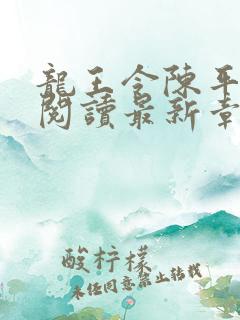 龍王令陳平
閱讀最新章
酸柠檬
未经同意禁止转载